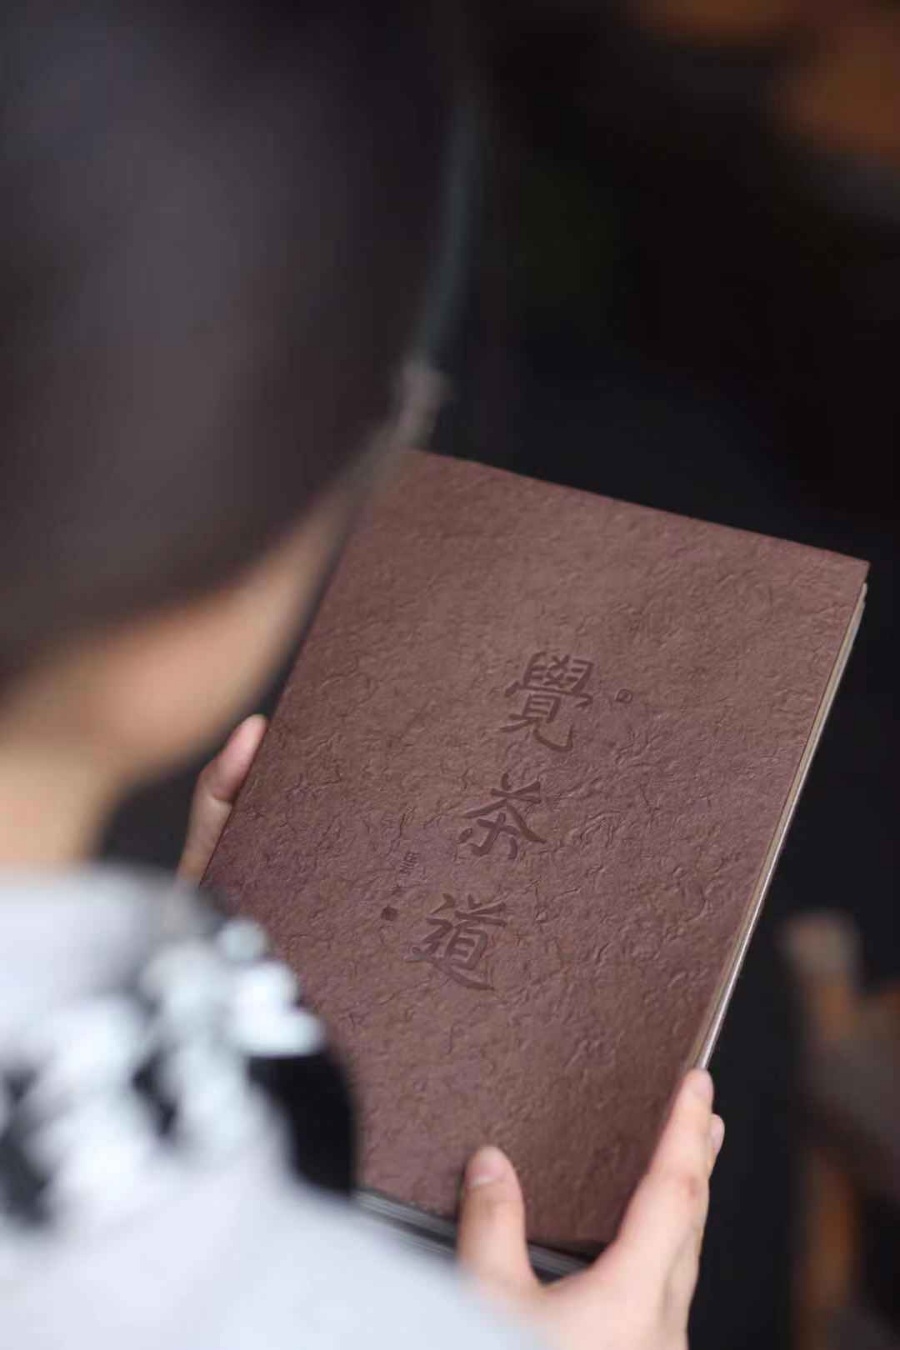 覺茶道